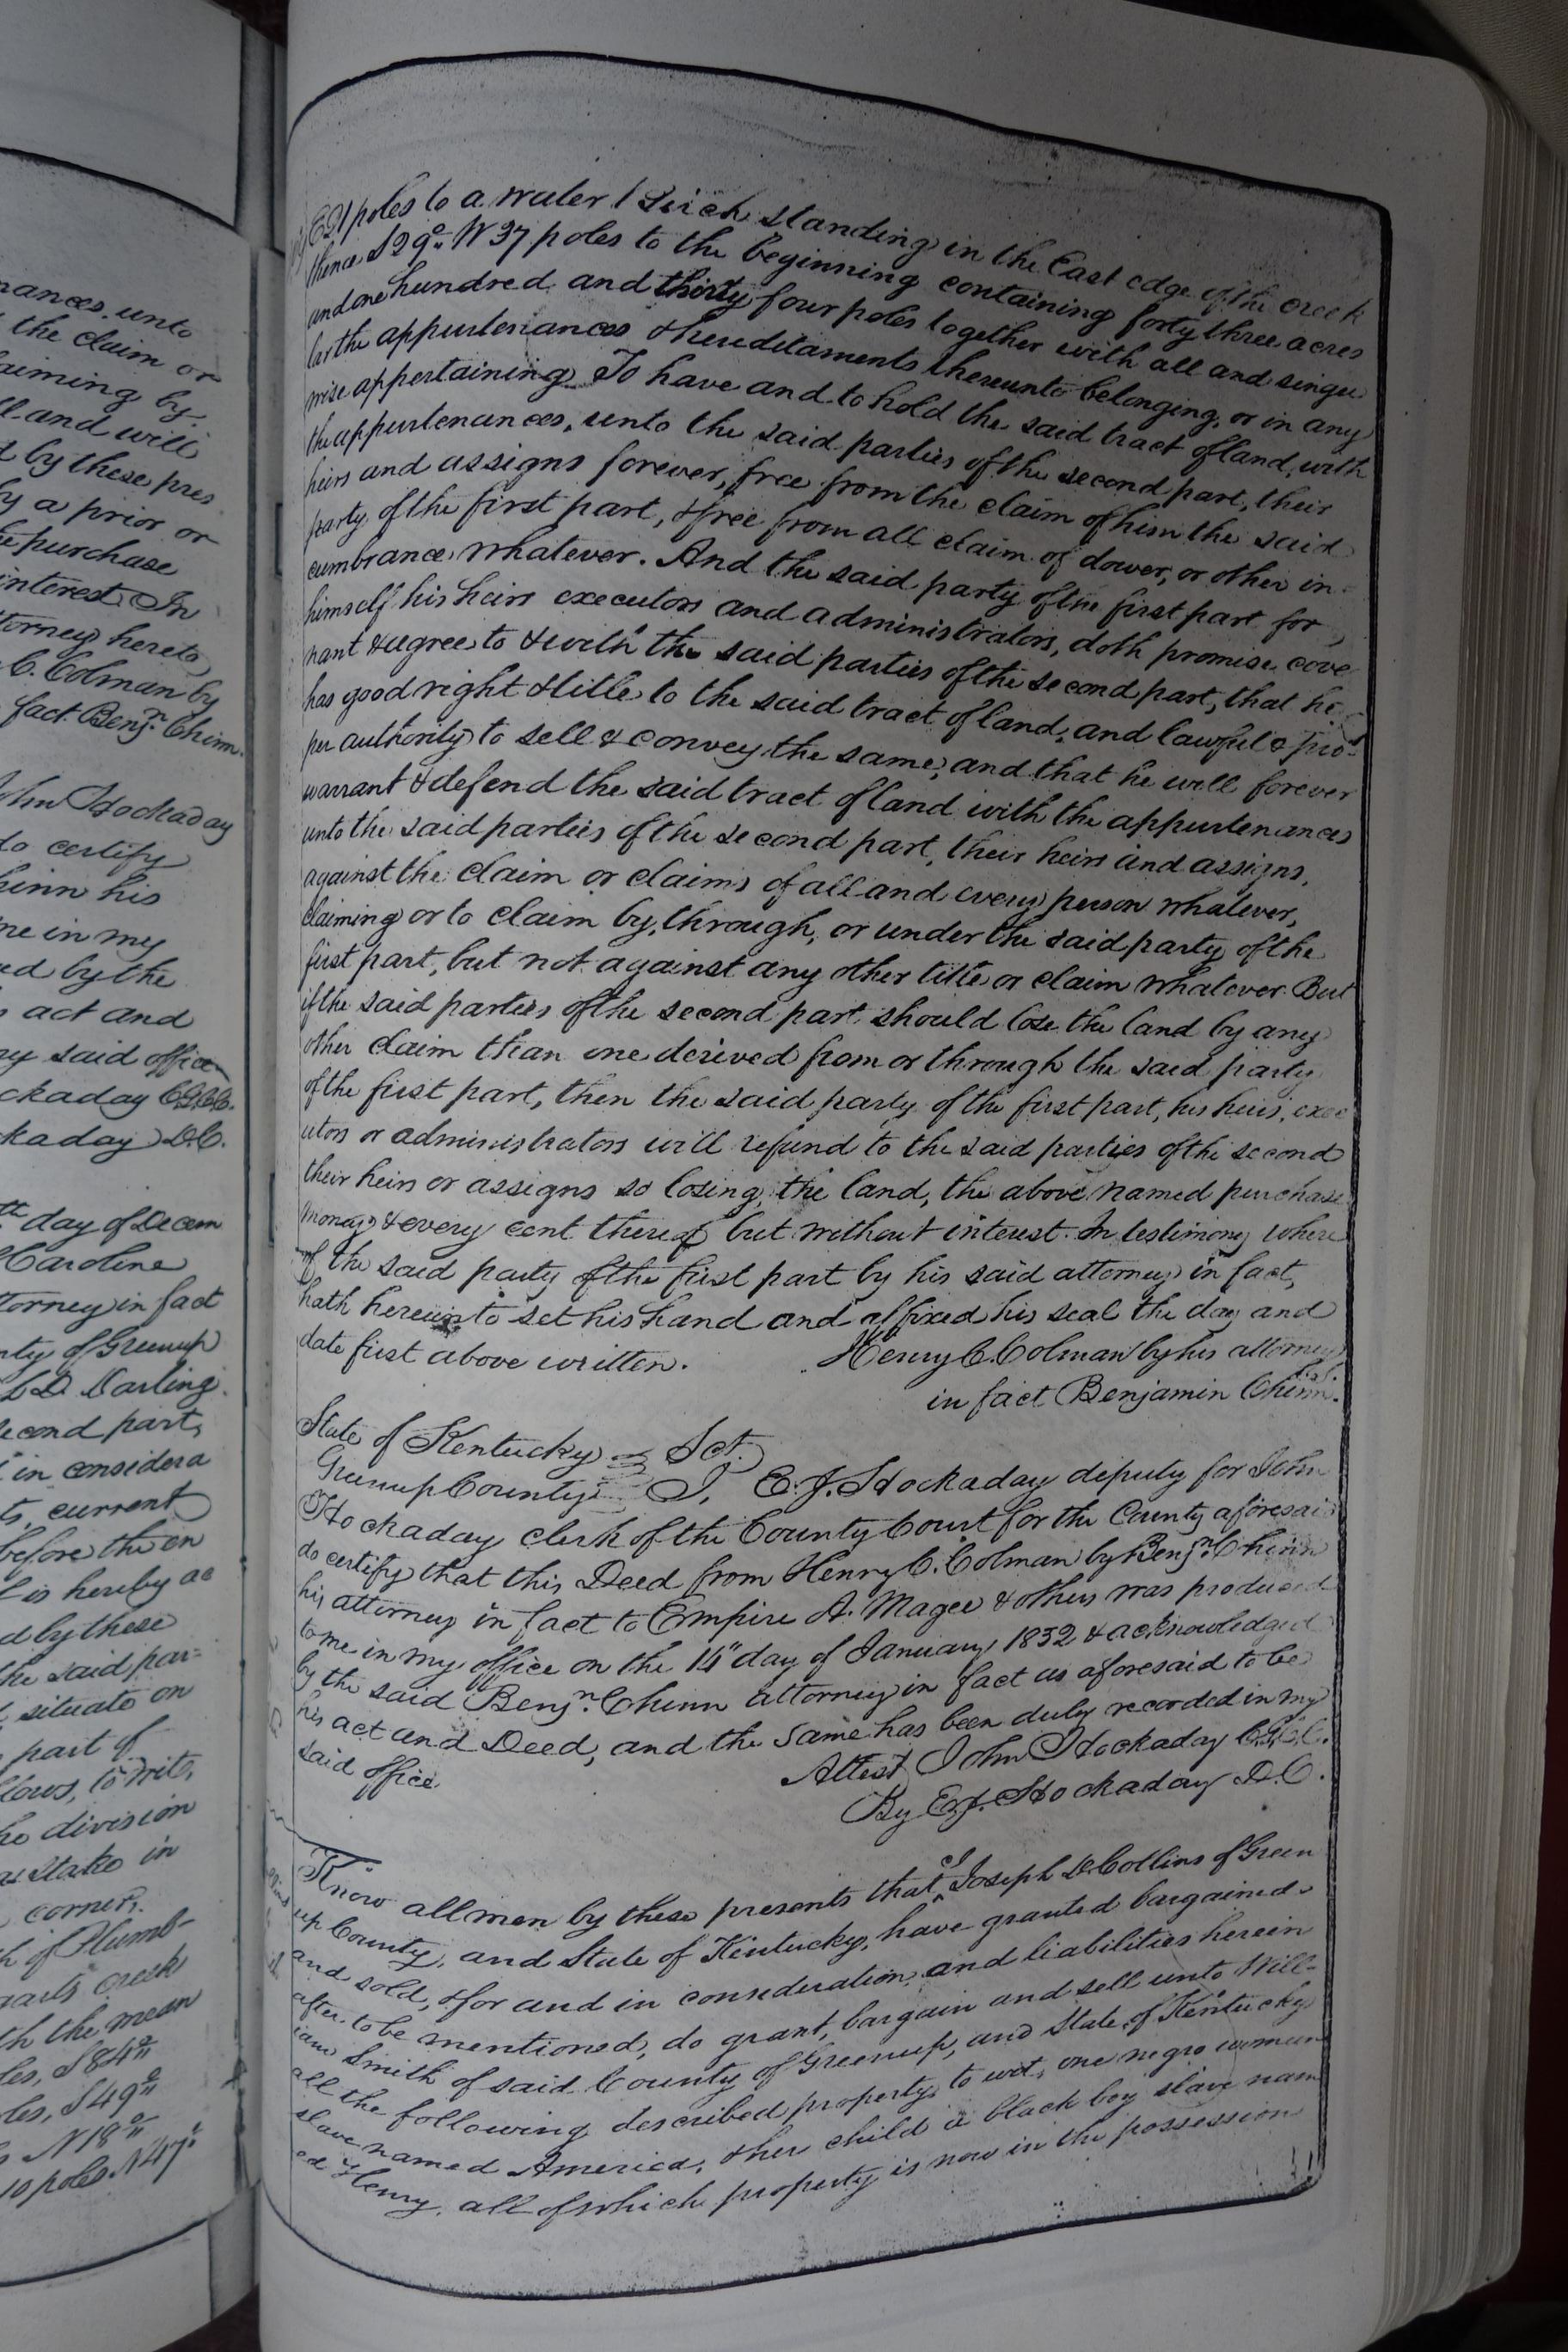 nances, unto
the claim or
aiming by
ll and will
d by these pres
by a prior or
he purchase
interest In
torney hereto
C. Colman by
fact Benjn. Chinn
John Hockaday
do certify
hinn his
me in my
ed by the
s act and
my said office
ckaday C.G.C.C.
kaday D.C.
th day of Decem
Caroline
torney in fact
nty of Greenup
D. Darling
second part,
in considera
ts, current
before the en
t is hereby ac
d by these
the said par=
situate on
part of
lows, to wit,
he division
a stake in
corner,
h of Plumb-
creek
th the mean
les, S 84°
les, S 49°
N 18°
10 poles N 47°
E 21 poles to a water birch standing in the East edge of the creek
thence S 29° W 37 poles to the beginning containing forty three acres
and one hundred and thirty four poles together with all and singu
lar the appurtenances & hereditaments thereunto belonging, or in any
wise appertaining. To have and to hold the said tract of land, with
the appurtenances, unto the said parties of the second part, their
heirs and assigns forever, free from the claim of him the said
party of the first part, & free from all claim of dower, or other in
cumbrance whatever. And the said party of the first part for
himself his heirs executors and administrators, doth promise cove
nant & agree to & with the said parties of the second part, that he
has good right & title to the said tract of land, and lawful & pro
per authority to sell & convey the same, and that he will forever
warrant & defend the said tract of land with the appurtenances
unto the said parties of the second part, their heirs and assigns,
against the claim or claims of all and every person whatever,
claiming or to claim by, through, or under the said party of the
first part, but not against any other title or claim whatever. But
if the said parties of the second part should lose the land by any
other claim than one derived from or through the said party
of the first part, then the said party of the first part, his heirs, exec
utors or administrators will refund to the said parties of the second
their heirs or assigns so losing the land, the above named purchase
money & every cent thereof but without interest. In testimony where
of the said party of the first part by his said attorney in fact,
hath hereunto set his hand and affixed his seal the day and
date first above written. Henry C. Colman by his attorney
in fact Benjamin Chinn.
State of Kentucky Sct.
Greenup County I, E. J. Hockaday deputy for John
Hockaday clerk of the County Court for the County aforesaid
do certify that this Deed from Henry C. Colman by Benjn. Chinn
his attorney in fact to Empire A. Magee & others was produced
to me in my office on the 14" day of January 1832 & acknowledged
by the said Benjn. Chinn attorney in fact as aforesaid to be
his act and Deed, and the same has been duly recorded in my
said office
Attest John Hockaday C.G.C.C.
By E. J. Hockaday D.C.
Know all men by these presents that I Joseph D. Collins of Green
up County, and State of Kentucky, have granted bargained
and sold, & for and in consideration, and liabilities herein
after to be mentioned, do grant, bargain and sell unto Will-
iam Smith of said County of Greenup, and State of Kentucky
all the following described property to wit, one negro woman
slave named America, & her child a black boy slave nam
ed Henry, all of which property is now in the possession